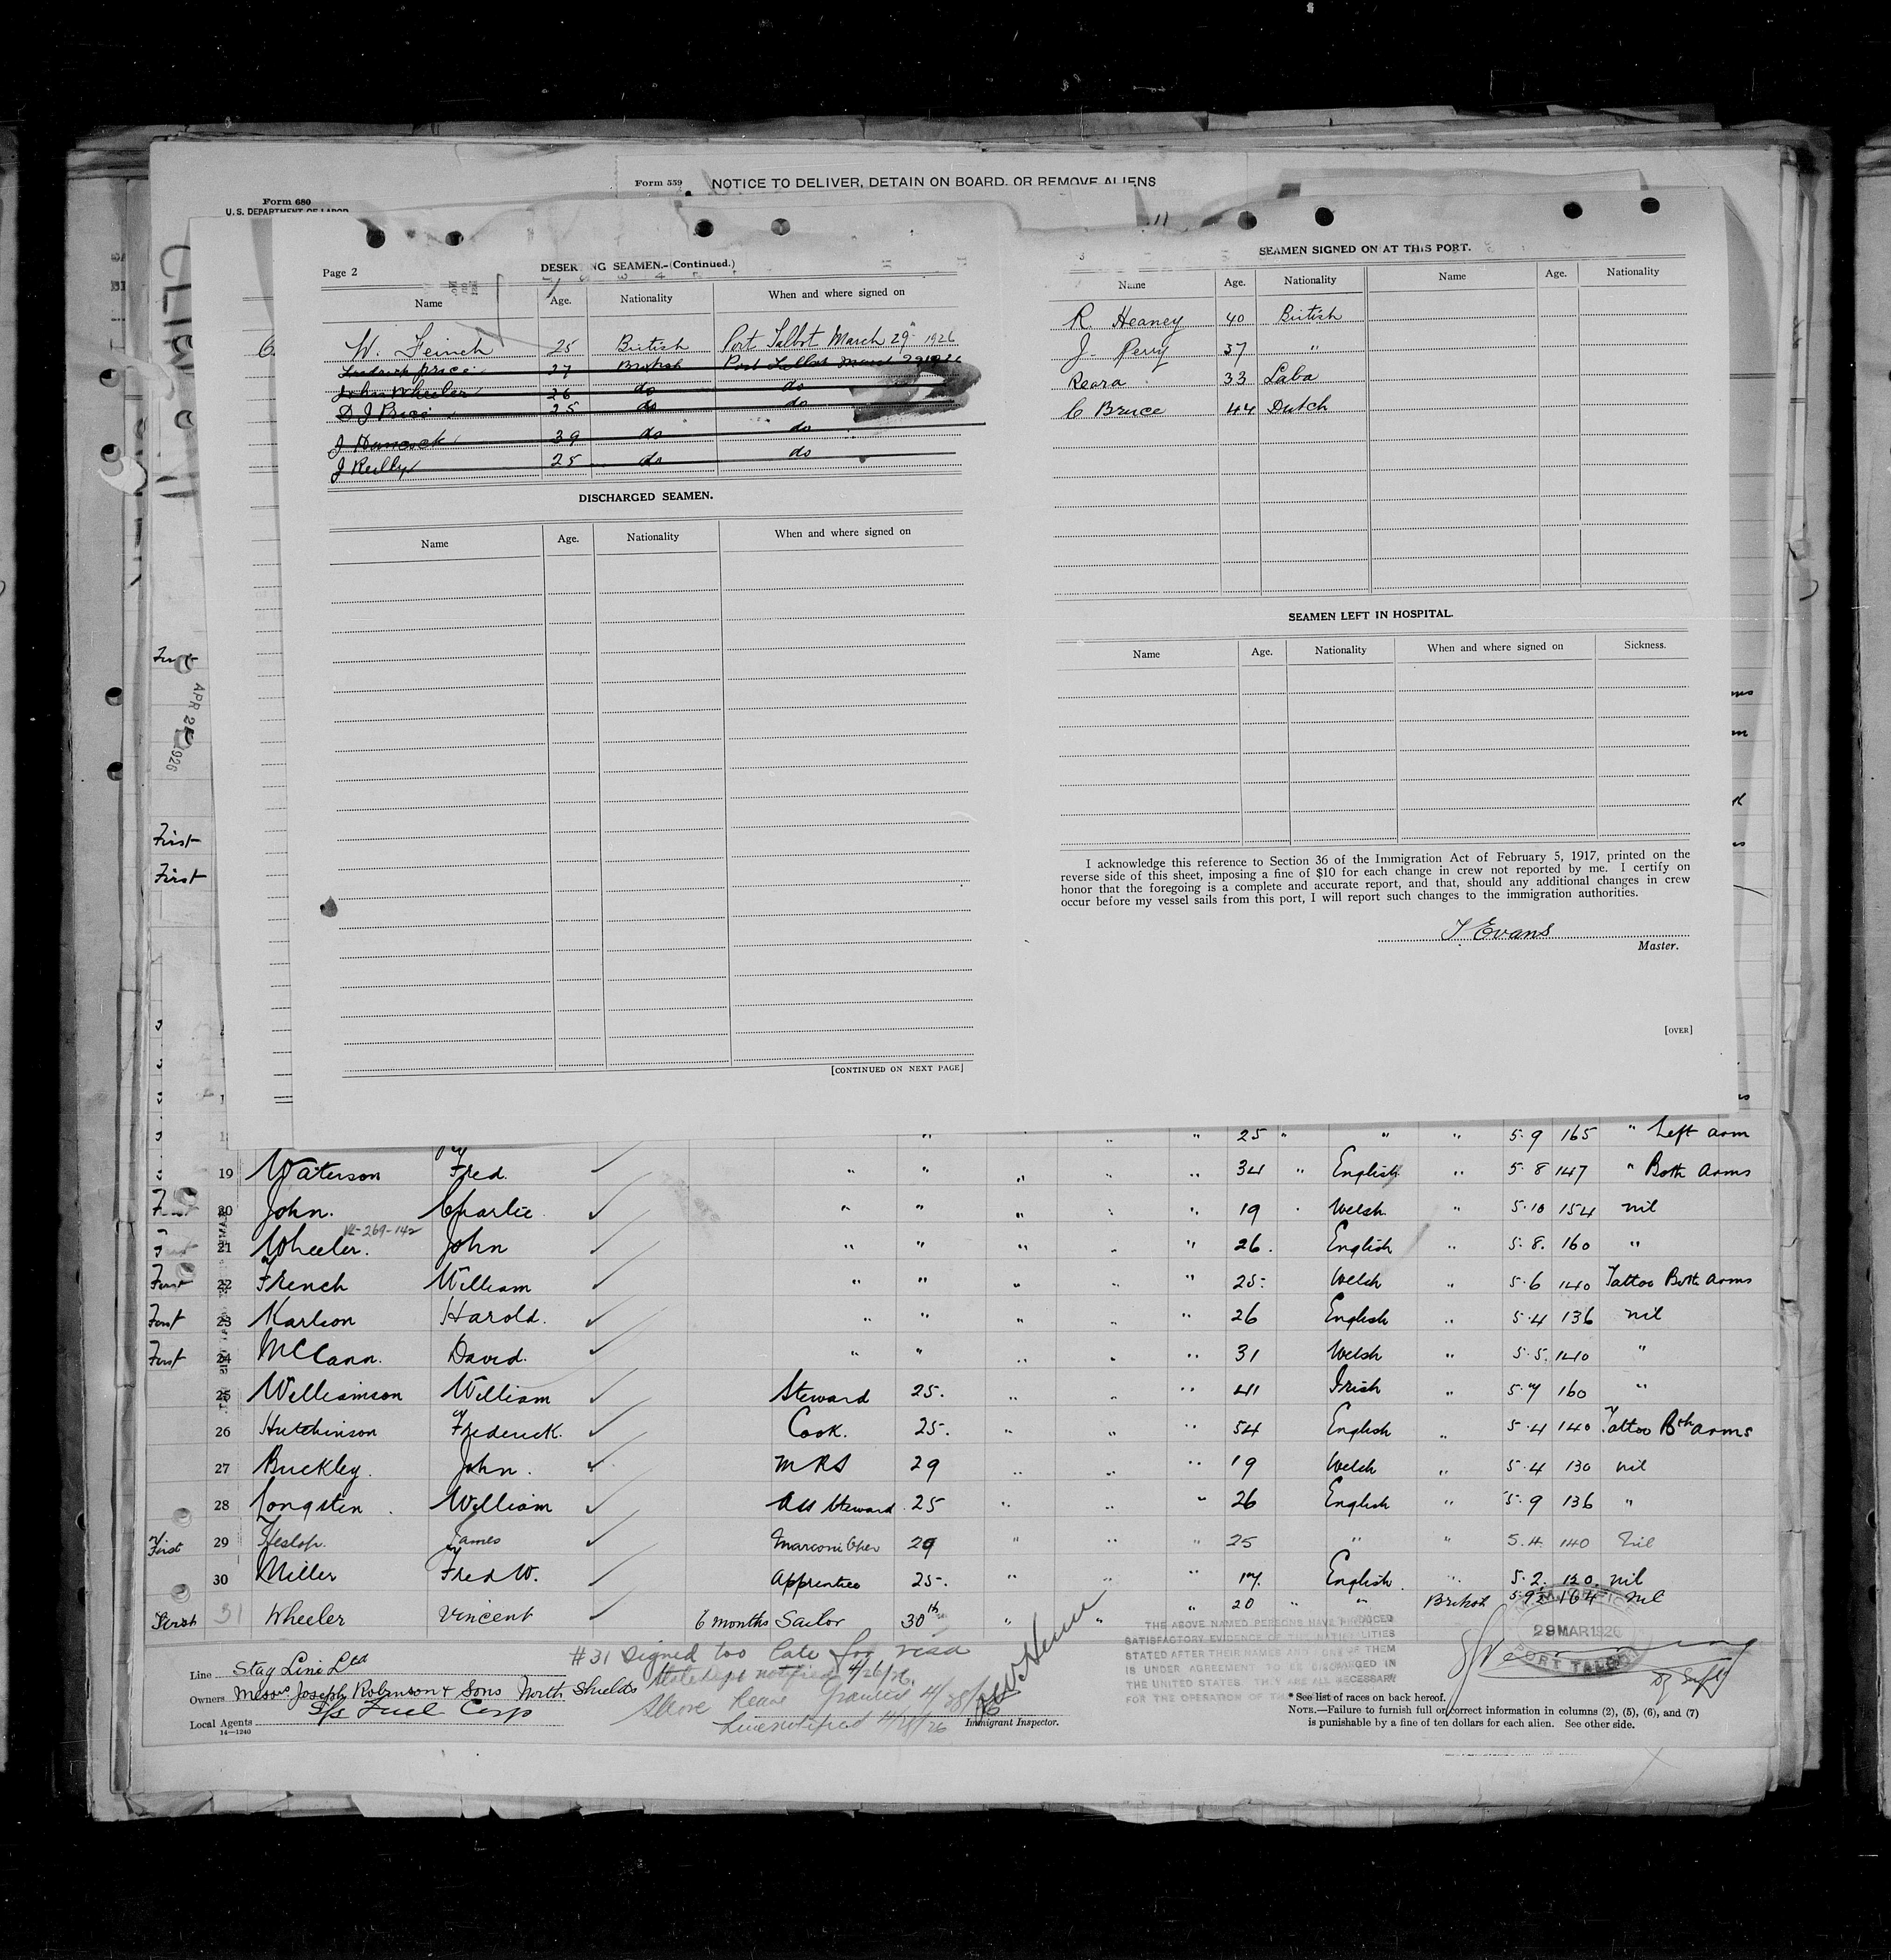 Form 559 NOTICE TO DELIVER, DETAIN ON BOARD, OR REMOVE ALIENS
Form 680
U. S. DEPARTMENT OF LABOR
Page 2
DESERTING SEAMEN.—(Continued.)
Name Age. Nationality When and where signed on
W. Feinch 25 British Port Talbot March 29th 1926
Frederick Price 27 British Port Talbot March 29 1926
John Wheeler 26 do do
D J Price 25 do do
J Hancock 39 do do
J Reilly 25 do do
DISCHARGED SEAMEN.
Name Age. Nationality When and where signed on
[CONTINUED ON NEXT PAGE]
3
SEAMEN SIGNED ON AT THIS PORT.
Name Age. Nationality Name Age. Nationality
R. Heaney 40 British
J. Perry 37 "
Reara 33 Laba
C Bruce 44 Dutch
SEAMEN LEFT IN HOSPITAL.
Name Age. Nationality When and where signed on Sickness.
I acknowledge this reference to Section 36 of the Immigration Act of February 5, 1917, printed on the
reverse side of this sheet, imposing a fine of $10 for each change in crew not reported by me. I certify on
honor that the foregoing is a complete and accurate report, and that, should any additional changes in crew
occur before my vessel sails from this port, I will report such changes to the immigration authorities.
T. Evans
Master.
[OVER]
First
APR 25 1926
First
First
" " " " 25 " " " 5.9 165 " Left arm
19 Waterson Fred. " " " " " 34 " English " 5.8 147 " Both arms
First 20 John. Charlie " " " " " 19 " Welsh " 5.10 154 nil
First 21 Wheeler. VL-269-142 John " " " " " 26. English " 5.8. 160 "
First 22 French William " " " " " 25. Welsh " 5.6 140 Tattoo Both arms
First 23 Karlson Harold. " " " " " 26 English " 5.4 136 nil
First 24 McCann. David. " " " " " 31 Welsh " 5.5. 140 "
25 Williamson William Steward 25. " " " 41 Irish " 5.7 160 "
26 Hutchinson Frederick. Cook. 25. " " " 54 English " 5.4 140 Tattoo Bth arms
27 Buckley. John. MRS 29 " " " 19 Welsh " 5.4 130 nil
28 Longsten. William Ass Steward 25 " " " 26 English " 5.9 136 "
First 29 Heslop. James Marconi Oper 29 " " " 25 " " 5.4. 140 nil
30 Miller Fred W. Apprentice 25. " " " 17. English. " 5.2. 120. nil
First 31 Wheeler Vincent 6 months Sailor 30th " " " 20 " " British 5.9½ 164 Nil
#31 Signed too late for visa
State Dept notified 4/26/26.
Line notified 4/28/26
Line Stag Line Ltd
Owners Messrs Joseph Robinson & Sons North Shields
Local Agents S/s Fuel Corp
14—1240
Immigrant Inspector.
THE ABOVE NAMED PERSONS HAVE PRODUCED
SATISFACTORY EVIDENCE OF THE NATIONALITIES
STATED AFTER THEIR NAMES AND NONE OF THEM
IS UNDER AGREEMENT TO BE DISCHARGED IN
THE UNITED STATES. THEY ARE ALL NECESSARY
FOR THE OPERATION OF THE
29 MAR 1926
PORT TALBOT
* See list of races on back hereof.
NOTE.—Failure to furnish full or correct information in columns (2), (5), (6), and (7)
is punishable by a fine of ten dollars for each alien. See other side.